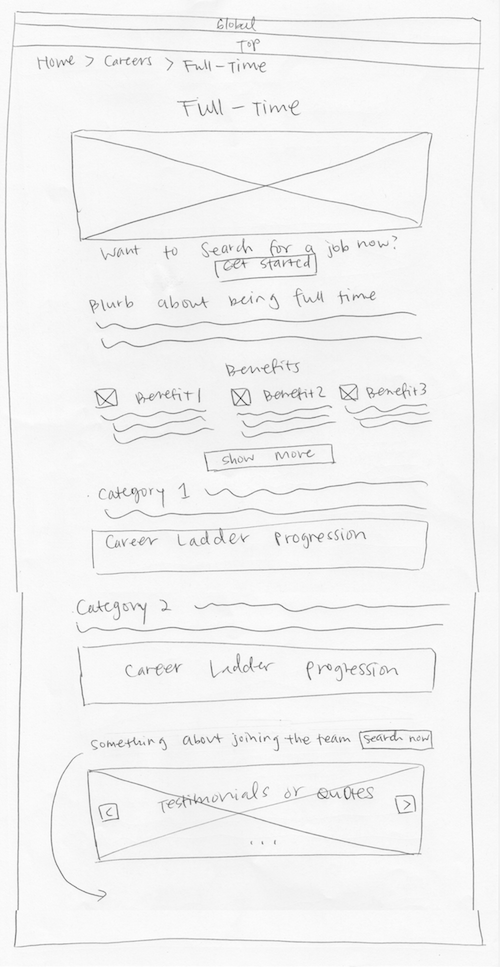 Global
Top
Home > Careers > Full-Time
Full-Time
Want to search for a job now?
Get started
Blurb about being full time
Benefits
Benefit 1 Benefit 2 Benefit 3
show more
Category 1
Career Ladder Progression
Category 2
Career Ladder Progression
something about joining the team search now
Testimonials or Quotes
< >
...